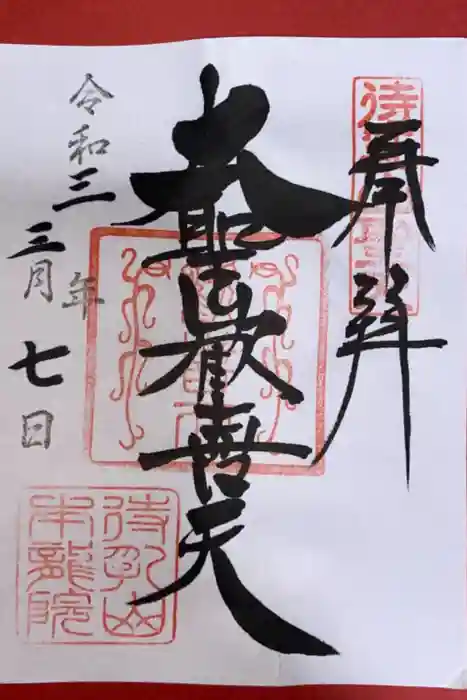 奉拝
大聖歓喜天
令和三年
三月七日
待乳山
本龍院